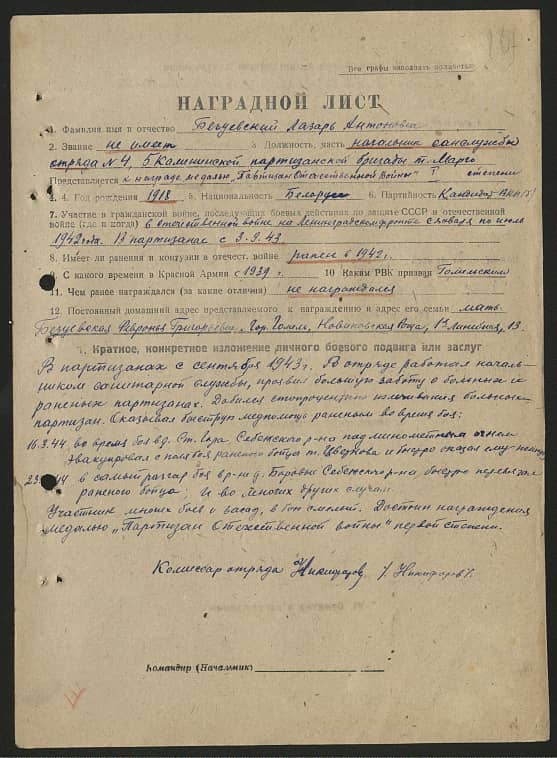 Все графы заполнять полностью
НАГРАДНОЙ ЛИСТ
1. Фамилия имя и отчество Безуевский Лазарь Антонович
2. Звание не имеет 3 Должность, часть начальник санслужбы
отряда №4, 5 Калининской партизанской бригады т. Марго
Представляется к награде медалью „Партизан Отечественной Войны" I степени
4. 4. Год рождения 1918 5. Национальность Белорус 6. Партийность Кандидат ВКП(б)
7. Участие в гражданской войне, последующих боевых действиях по защите СССР и отечественной
войне (где и когда) в отечественной войне на Ленинградском фронте с января по июль
1942 года. В партизанах с 3.9.43.
8. Имеет ли ранения и контузии в отечест. войне ранен в 1942г.
9. С какого времени в Красной Армии с 1939 г. 10 Каким РВК призван Гомельским
11. Чем ранее награждался (за какие отличия) не награждался
12. Постоянный домашний адрес представляемого к награждению и адрес его семьи мать
Безуевская Февронья Григорьевна, гор. Гомель, Роща, 1я линейная, 13.
1. Краткое, конкретное изложение личного боевого подвига или заслуг
В партизанах с сентября 1943 г. В отряде работал началь-
ником санитарной службы, проявил большую заботу о больных и
раненых партизанах. Добился стопроцентного излечивания больных
партизан. Оказывал быструю медпомощь раненым во время боя:
16.3.44 во время боя в д. Ст. Гора Себежского р-на под минометным огнем
эвакуировал с поля боя раненого бойца т. Цветкова и быстро оказал ему помощь
44 в самый разгар боя в р-не д. Боровые Себежского р-на быстро перевязал
раненого бойца; и во многих других случаях.
Участник многих боев и засад, в бою смелый. Достоин награждения
медалью „Партизан Отечественной войны" первой степени.
Комиссар отряда Никифоров /Никифоров/.
Командир (Начальник)